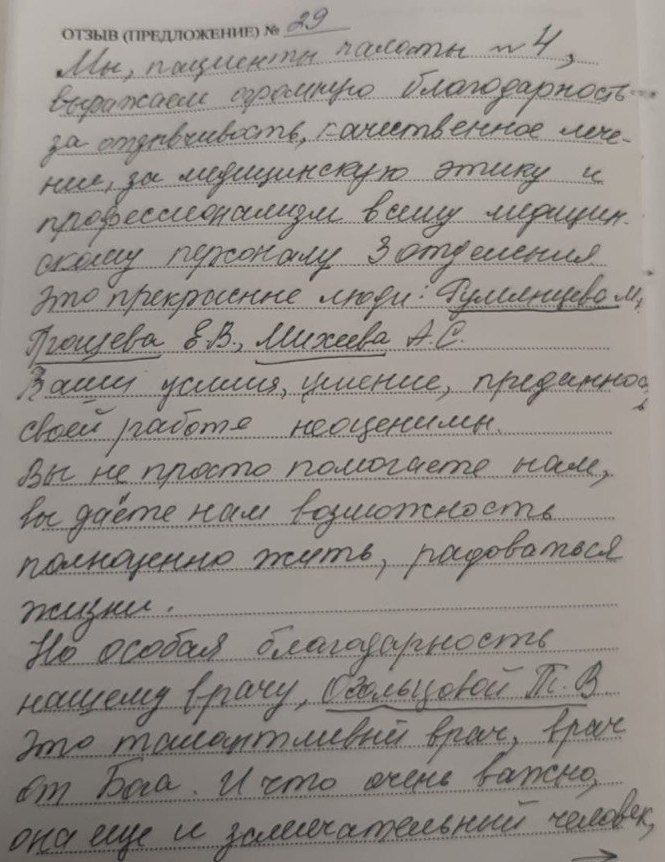 ОТЗЫВ (ПРЕДЛОЖЕНИЕ) № 29
Мы, пациенты палаты № 4,
выражаем огромную благодарность
за отзывчивость, качественное лече-
ние, за медицинскую этику и
профессионализм всему медицин-
скому персоналу 3 отделения
Это прекрасные люди: Румянцева М,
Е.В., Михеева А.С.
Ваши усилия, умение, преданность
своей работе неоценимы.
Вы не просто помогаете нам,
вы даёте нам возможность
полноценно жить, радоваться
жизни.
Но особая благодарность
нашему врачу, Т.В
Это талантливый врач, врач
от Бога. И что очень важно,
она еще и замечательный человек,